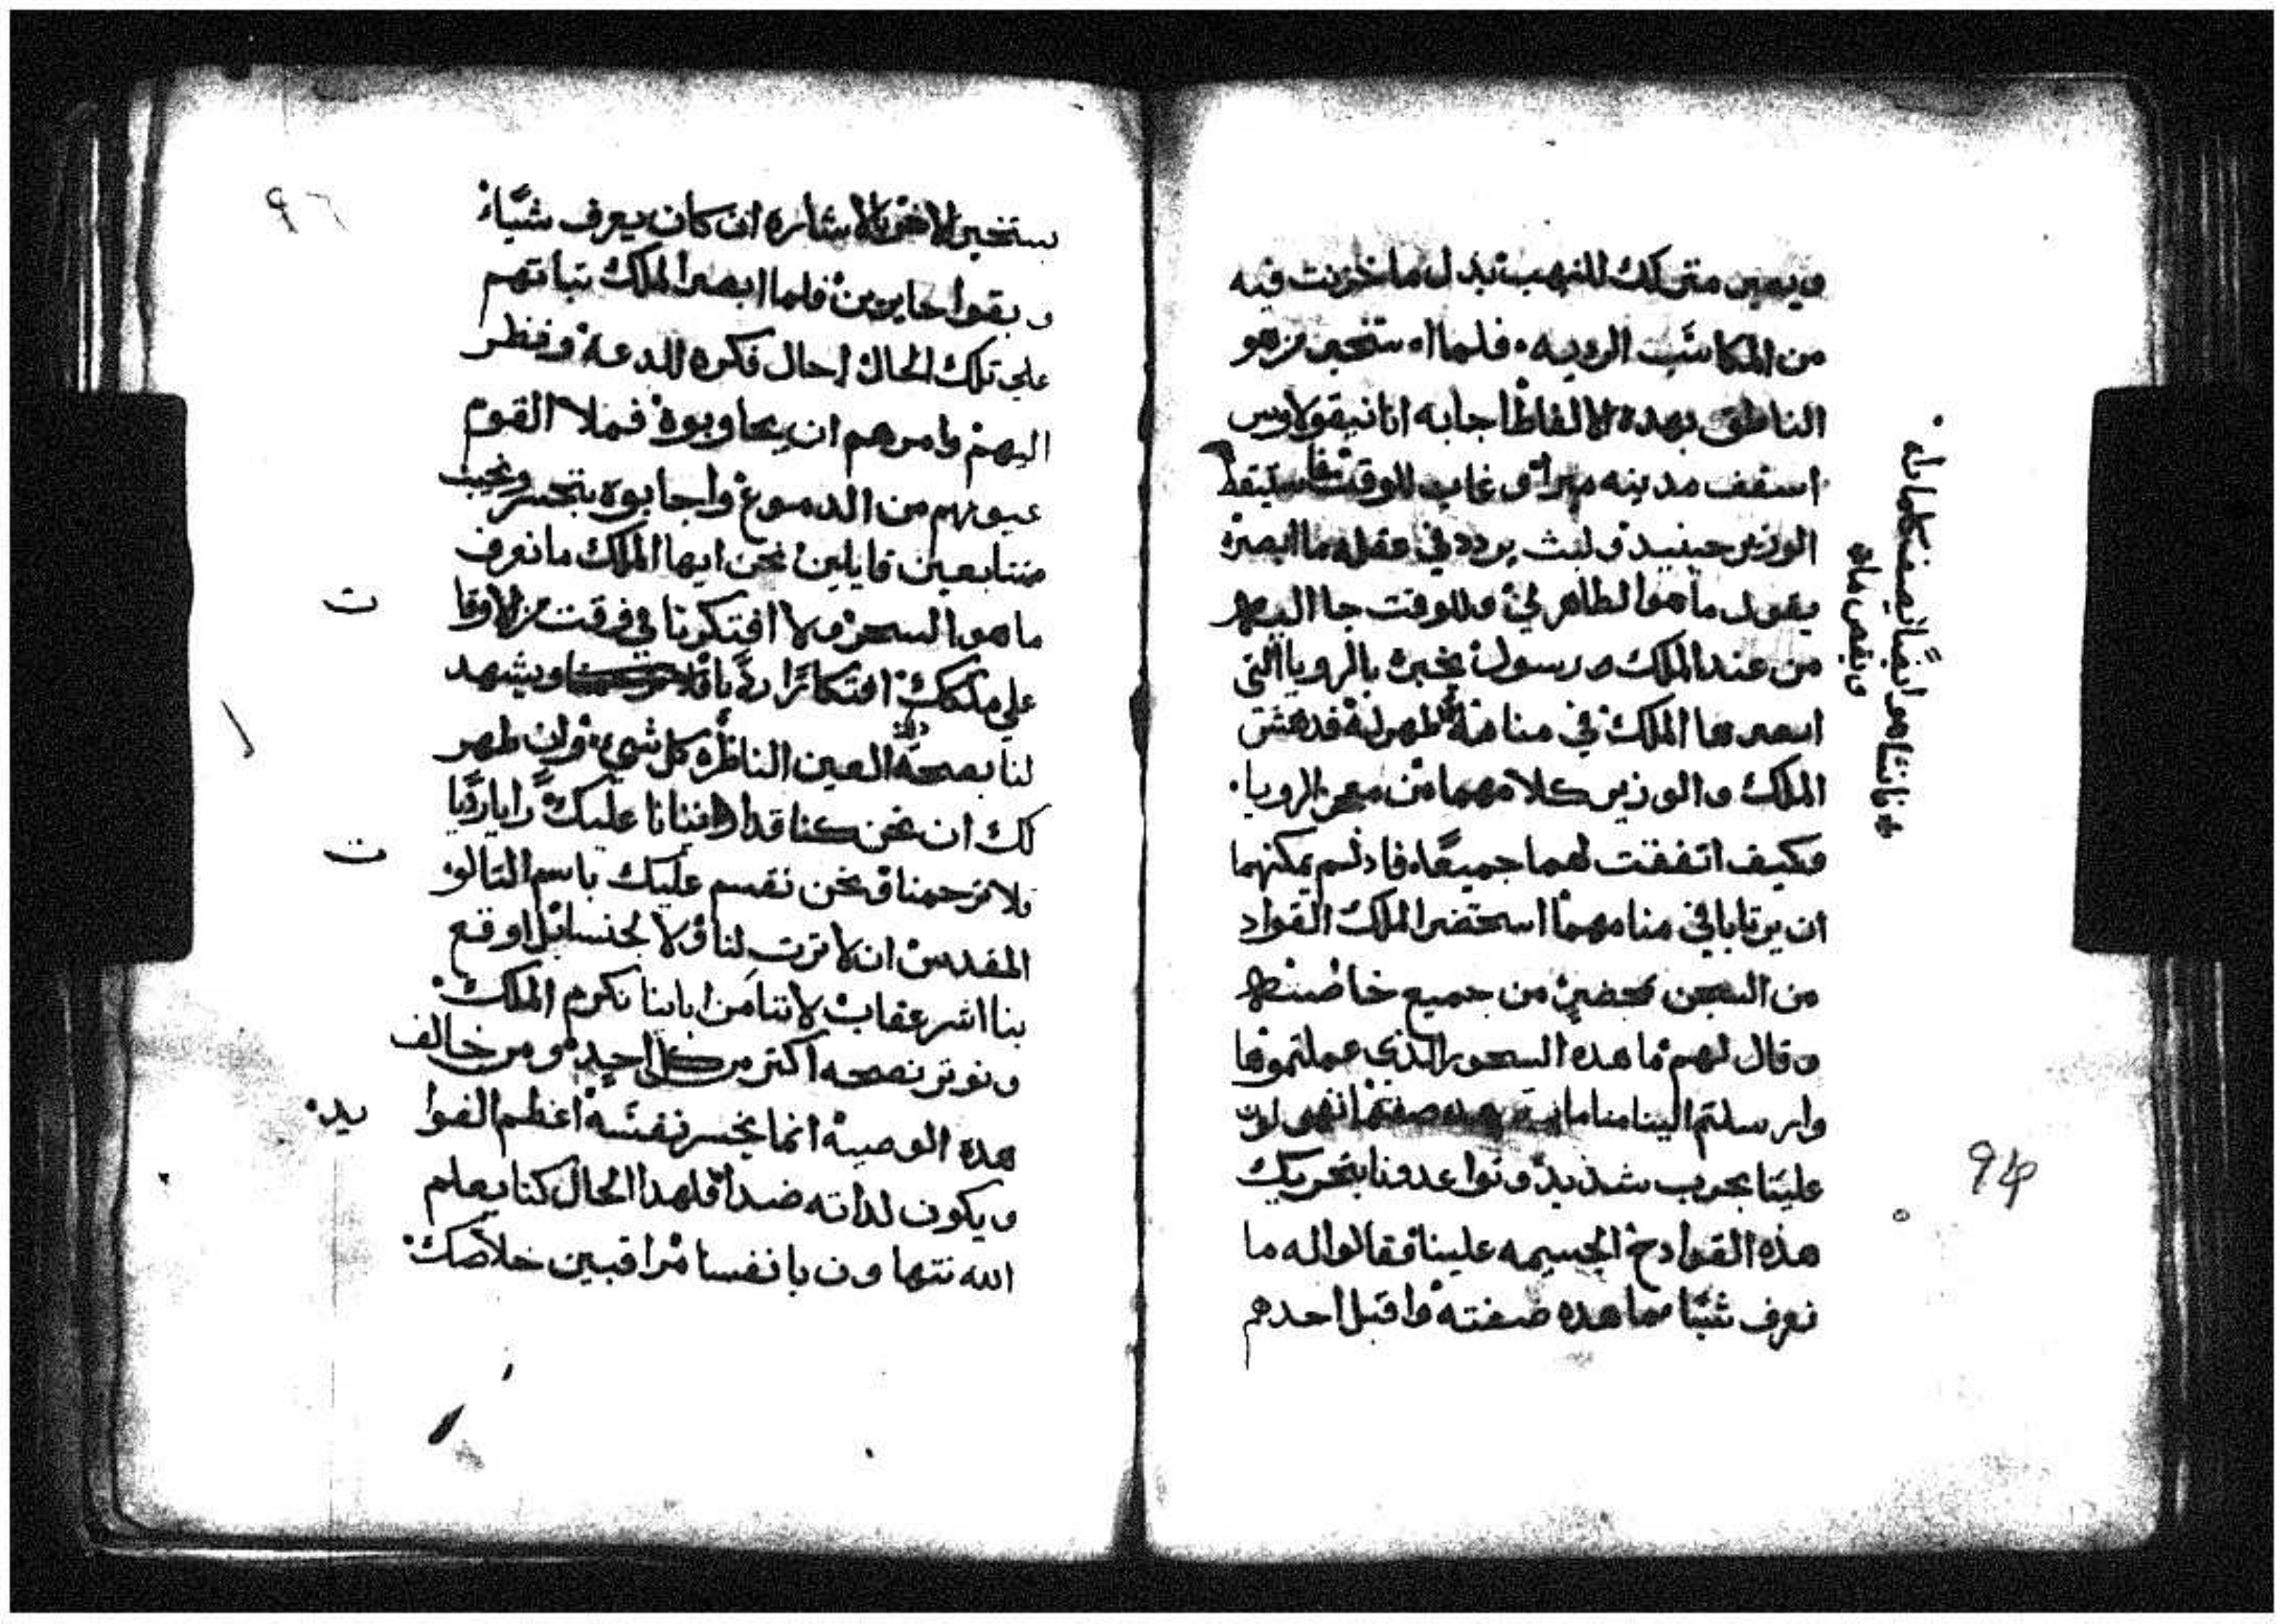 ويصير منزلك للنهب بدل ما خزنت فيه
من المكاسب الرديه فلما استخبر من هو
الناطق بهده الالفاظ اجابه انا نيقولاوس
اسقف مدينه ميرا وغاب للوقت فاستيقظ
الوزير حينيد ولبث يردد في عقله ما ابصره
يقول ما هو الظاهر لي وللوقت جا اليه
من عند الملك رسول يخبره بالرويا التي
ابصرها الملك في منامه ظهر له فدهش
الملك والوزير كلاهما من معني الرويا
وكيف اتفقت لهما جميعا فاد لم يمكنهما
ان يرتابا في منامهما استحضر الملك القواد
من السجن بمحضر من جميع خاصته
وقال لهم ما هده السحور الذي عملتموها
وارسلتم الينا مناما هده صفته
علينا بحرب شديد وتواعدونا بتحريك
هذه القوادح الجسيمه علينا فقالوا له ما
نعرف شيا مما هده صفته واقبل احدهم
ونقص ماه
94
٩٦
يستخبر الاخر بالاشاره ان كان يعرف شيا
وبقوا حايرين فلما ابصر الملك تباتهم
على تلك الحال احال فكره للدعة ونظر
اليهم وامرهم ان يجاوبوه فملا القوم
عيونهم من الدموع واجابوه بتحسر ونحيب
متتابعين قايلين نحن ايها الملك ما نعرف
ما هو السحر ولا افتكرنا في وقت من الاوقا
ت
على ملكك افتكارا رديا ويشهد
لنا بصحة العين الناظره كل شي وان ظهر
لك ان نحن كنا قد ارتابنا عليك رايا رديا
فلا ترحمنا ونحن نقسم عليك باسم التالو
ت
المقدس ان لا ترت لنا ولا لجنسنا بل اوقع
بنا اشر عقاب لاننا من ابانا نكرم الملك
ونوتر نصحه اكتر من كل احد ومن خالف
هده الوصية انما يخسر نفسه اعظم الفوا
يد
ويكون لداته ضدا فلهدا الحال كنا يعلم
الله نتهاون بانفسنا مراقبين خلاصك